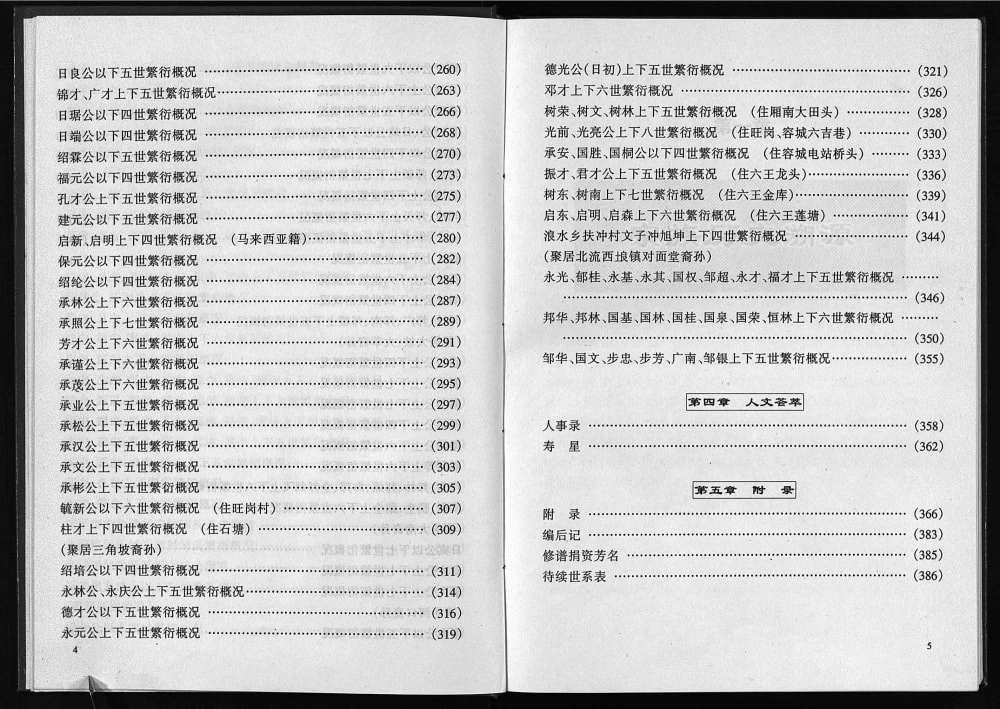 日良公以下五世繁衍概况 ………………………………(260)
锦才、广才上下五世繁衍概况……………………………(263)
日琚公以下四世繁衍概况 ………………………………(266)
日端公以下四世繁衍概况 ………………………………(268)
绍霖公以下五世繁衍概况 ………………………………(270)
福元公以下四世繁衍概况 ………………………………(273)
孔才公上下五世繁衍概况 ………………………………(275)
建元公以下五世繁衍概况 ………………………………(277)
启新、启明上下四世繁衍概况 (马来西亚籍)………………(280)
保元公以下四世繁衍概况 ………………………………(282)
绍纶公以下四世繁衍概况 ………………………………(284)
承林公上下六世繁衍概况 ………………………………(287)
承照公上下七世繁衍概况 ………………………………(289)
芳才公上下六世繁衍概况 ………………………………(291)
承谨公上下六世繁衍概况 ………………………………(293)
承茂公上下六世繁衍概况 ………………………………(295)
承业公上下五世繁衍概况 ………………………………(297)
承松公上下五世繁衍概况 ………………………………(299)
承汉公上下五世繁衍概况 ………………………………(301)
承文公上下五世繁衍概况 ………………………………(303)
承彬公上下五世繁衍概况 ………………………………(305)
毓新公以下六世繁衍概况 (住旺岗村) …………………(307)
柱才上下四世繁衍概况 (住石塘) ………………………(309)
(聚居三角坡裔孙)
绍培公以下四世繁衍概况 ………………………………(311)
永林公、永庆公上下五世繁衍概况…………………………(314)
德才公以下五世繁衍概况 ………………………………(316)
永元公上下五世繁衍概况 ………………………………(319)
4
德光公(日初)上下五世繁衍概况 …………………………(321)
邓才上下六世繁衍概况 …………………………………(326)
树荣、树文、树林上下五世繁衍概况 (住厢南大田头) ………(328)
光前、光亮公上下八世繁衍概况 (住旺岗、容城六吉巷) ……(330)
承安、国胜、国桐公以下四世繁衍概况 (住容城电站桥头) …(333)
振才、君才公上下五世繁衍概况 (住六王龙头)……………(336)
树东、树南上下七世繁衍概况 (住六王金库)………………(339)
启东、启明、启森上下六世繁衍概况 (住六王莲塘) …………(341)
浪水乡扶冲村文子冲旭坤上下四世繁衍概况 ……………(344)
(聚居北流西埌镇对面堂裔孙)
永光、郁桂、永基、永其、国权、邹超、永才、福才上下五世繁衍概况 ………
……………………………………………………………(346)
邦华、邦林、国基、国林、国桂、国泉、国荣、恒林上下六世繁衍概况 ………
……………………………………………………………(350)
邹华、国文、步忠、步芳、广南、邹银上下五世繁衍概况……………(355)
第四章 人文荟萃
人事录 ……………………………………………………(358)
寿 星 ……………………………………………………(362)
第五章 附 录
附 录 ……………………………………………………(366)
编后记 ……………………………………………………(383)
修谱捐资芳名 ……………………………………………(385)
待续世系表 ………………………………………………(386)
5